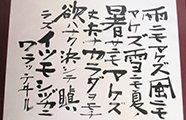 雨ニモマケズ風ニモ
マケズ雪ニモ夏ノ
暑サニモマケヌ
丈夫ナカラダヲモチ
欲ハナク決シテ瞋
ラズイツモシヅカニ
ワラッテヰル